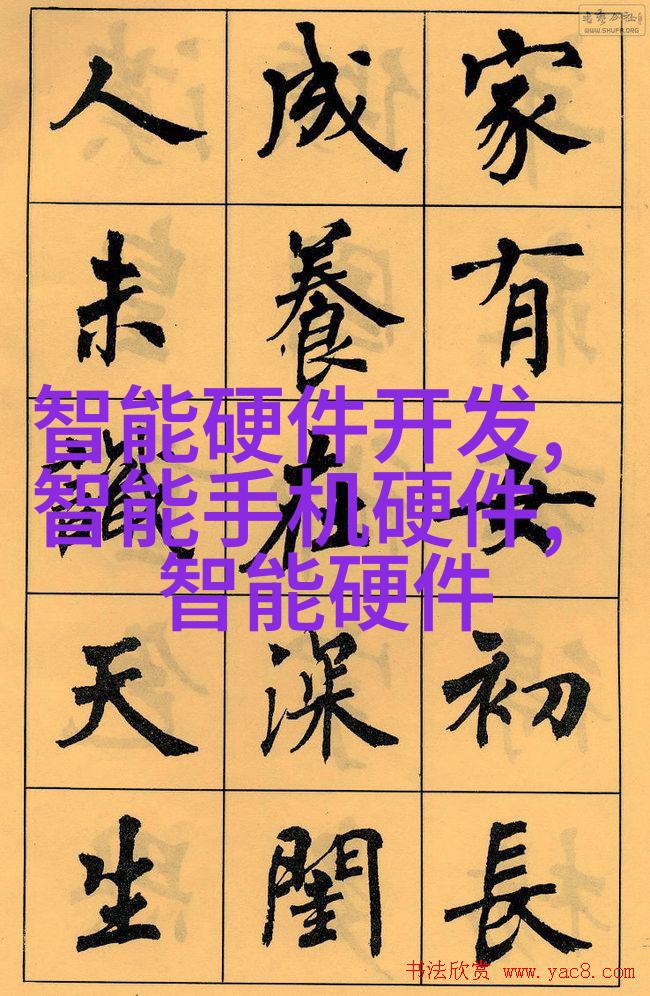 家有女初長
成養在深閨
人未識天生
智能硬件开发,
智能手机硬件,
智能硬件
WWW.SHUFA.ORG
书法欣赏 www.yac8.com